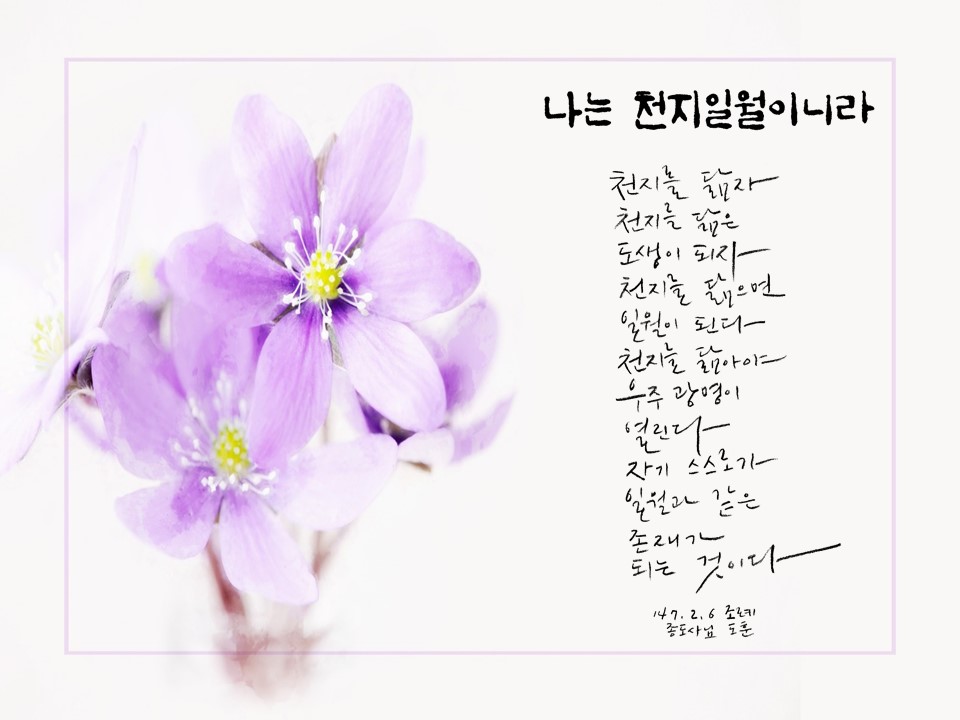 나는 천지일월이니라
천지를 닮자
천지를 닮은
도생이 되자
천지를 닮으면
일월이 된다
천지를 닮아야
우주 광명이
열린다
자기 스스로가
일월과 같은
존재가
되는 것이다
147. 2. 6
종도사님 도훈